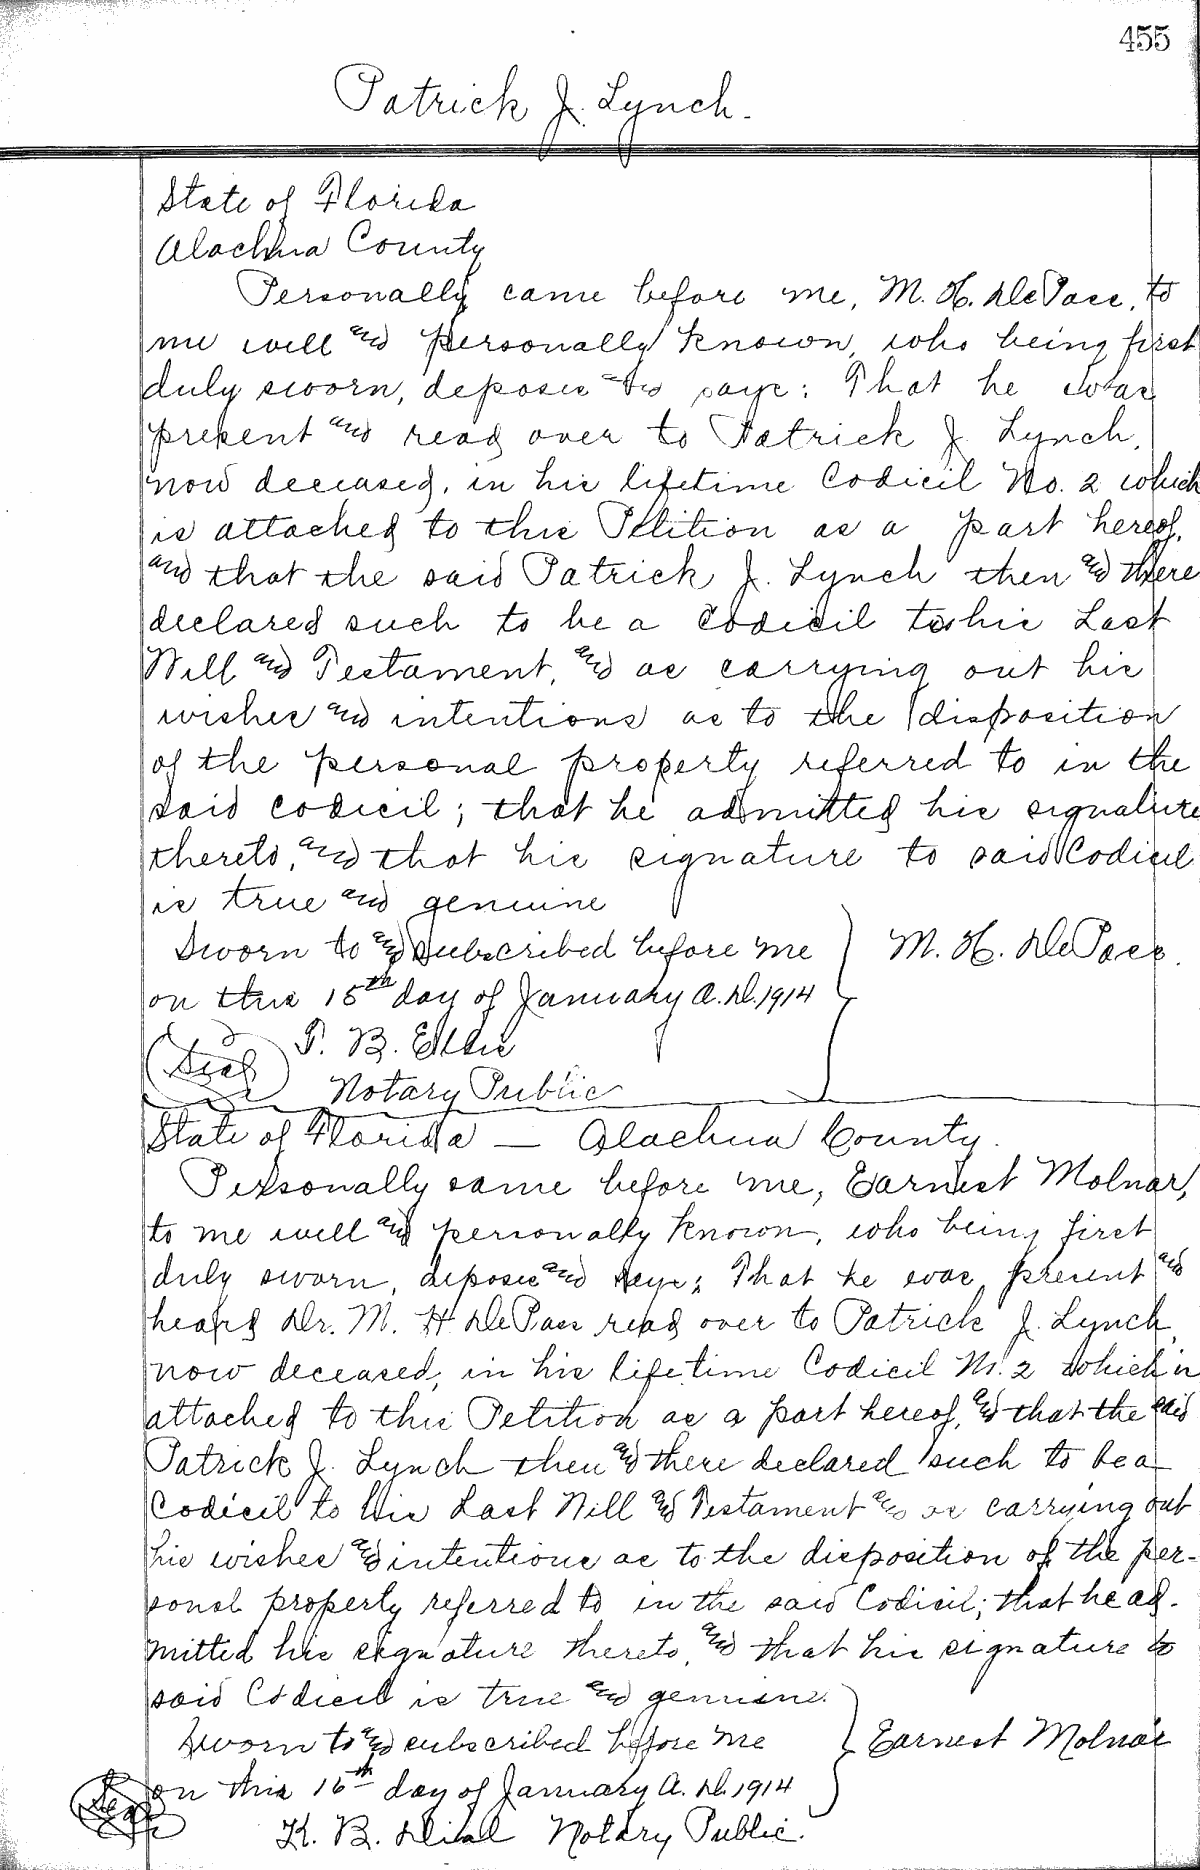 455
Patrick J. Lynch.
State of Florida
Alachua County
Personally came before me, M. H. DePass, to
me well and personally known, who being first
duly sworn, deposes and says: That he was
present and read over to Patrick J. Lynch,
now deceased, in his lifetime Codicil No. 2 which
is attached to this Petition as a part hereof,
and that the said Patrick J. Lynch then and there
declared such to be a Codicil to his Last
Will and Testament, and as carrying out his
wishes and intentions as to the disposition
of the personal property referred to in the
said codicil; that he admitted his signature
thereto, and that his signature to said Codicil
is true and genuine
Sworn to and subscribed before me
M. H. DePass.
on this 15th day of January A.D. 1914
Seal
P. B. Ellis
Notary Public
State of Florida — Alachua County.
Personally came before me, Earnest Molnar,
to me well and personally known, who being first
duly sworn, deposes and says; That he was present and
heard Dr. M. H. DePass read over to Patrick J. Lynch,
now deceased, in his lifetime Codicil No. 2 which is
attached to this Petition as a part hereof, and that the said
Patrick J. Lynch then and there declared such to be a
Codicil to his Last Will and Testament and as carrying out
his wishes and intentions as to the disposition of the per-
sonal property referred to in the said Codicil; that he ad-
mitted his signature thereto, and that his signature to
said Codicil is true and genuine.
Sworn to and subscribed before me
Earnest Molnar
on this 15th day of January A.D. 1914
Seal
K. B. Dial Notary Public.